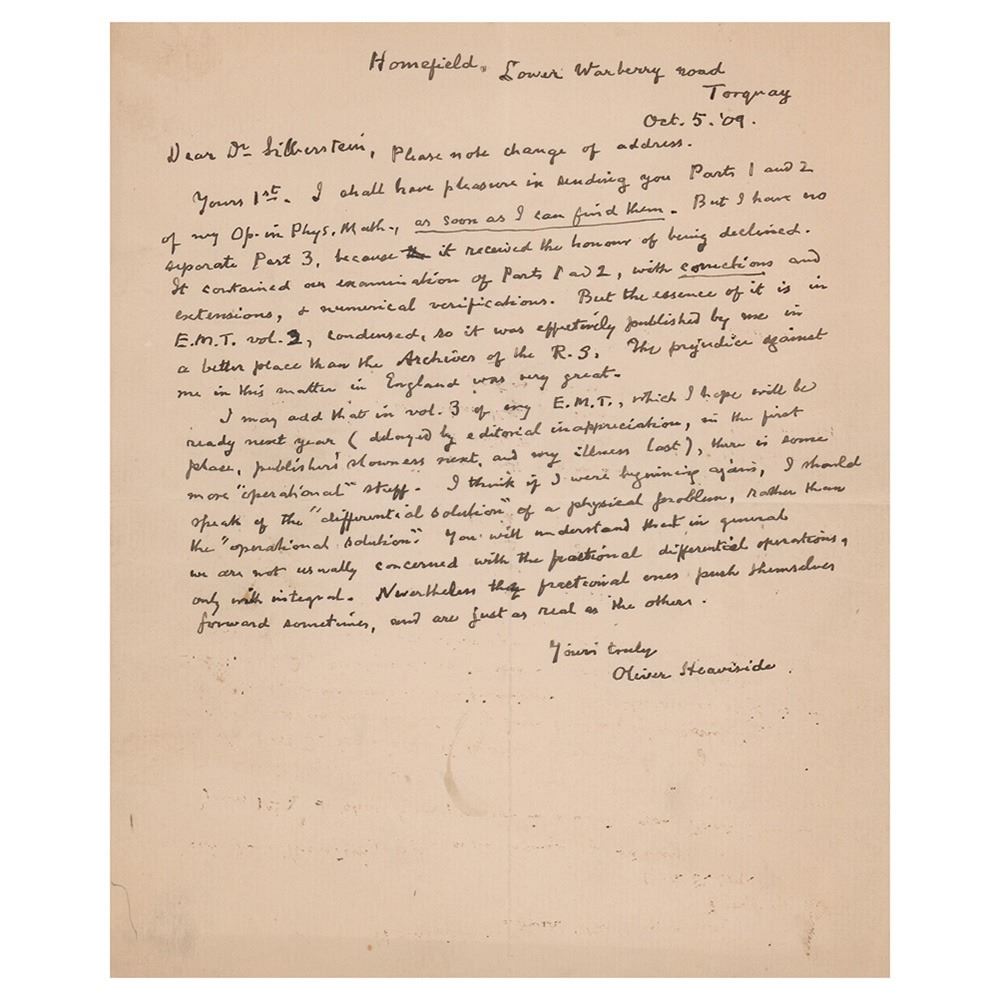 Homefield, Lower Warberry road
Torquay
Oct. 5. '09.
Dear Dr Silberstein, Please note change of address.
Yours 1st. I shall have pleasure in sending you Parts 1 and 2
of my Op. in Phys. Math., as soon as I can find them. But I have no
separate Part 3, because it received the honour of being declined.
It contained an examination of Parts 1 and 2, with corrections and
extensions, & numerical verifications. But the essence of it is in
E.M.T. vol. 2, condensed, so it was effectively published by me in
a better place than the Archives of the R.S. The prejudice against
me in this matter in England was very great.
I may add that in vol. 3 of my E.M.T., which I hope will be
ready next year (delayed by editorial inappreciation, in the first
phase, publishers' slowness next, and my illness last), there is some
more "operational" stuff. I think if I were beginning again, I should
speak of the "differential solution" of a physical problem, rather than
the "operational solution". You will understand that in general
we are not usually concerned with the fractional differential operations,
only with integral. Nevertheless the fractional ones push themselves
forward sometimes, and are just as real as the others.
Yours truly
Oliver Heaviside.